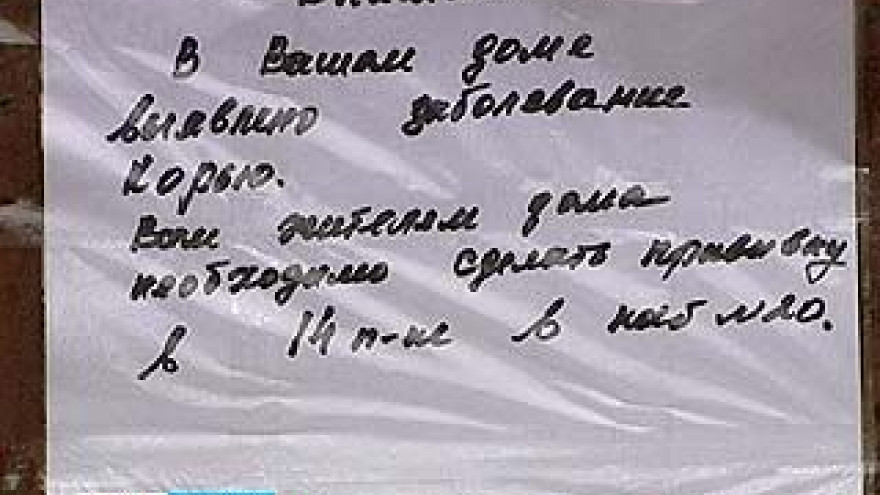 В Вашом доме
выявлено заболевание
Корью.
Вам жителям дома
необходимо сделать прививку
в 14 п-ке в каб №20.